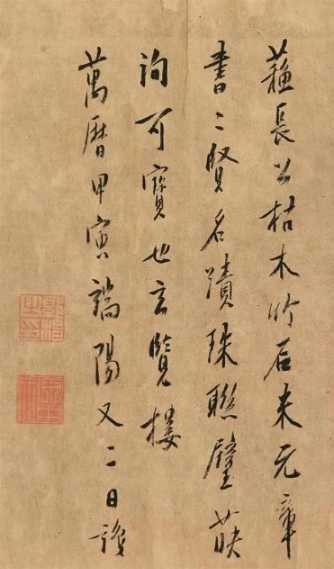 蘇長公枯木竹石米元章
書二賢名蹟珠聯璧映
詢可寶也玄覽樓
萬曆甲寅端陽又二日識